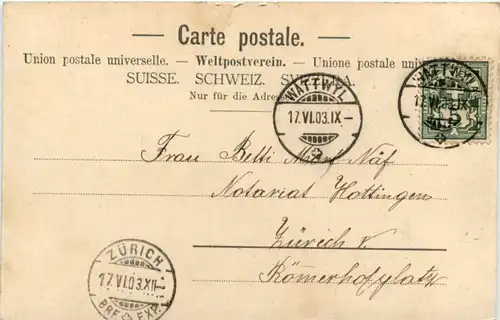 Carte postale.
Union postale universelle. — Weltpostverein. — Unione postale
SUISSE. SCHWEIZ.
Nur für die
WATTWYL
17.VI.03.IX
WATTWYL
17.VI.03.IX
5
Frau Betti Näf
Notariat Hottingen
Zürich V
Römerhofplatz
ZÜRICH
17.VI.03.XII
BRF. EXP.